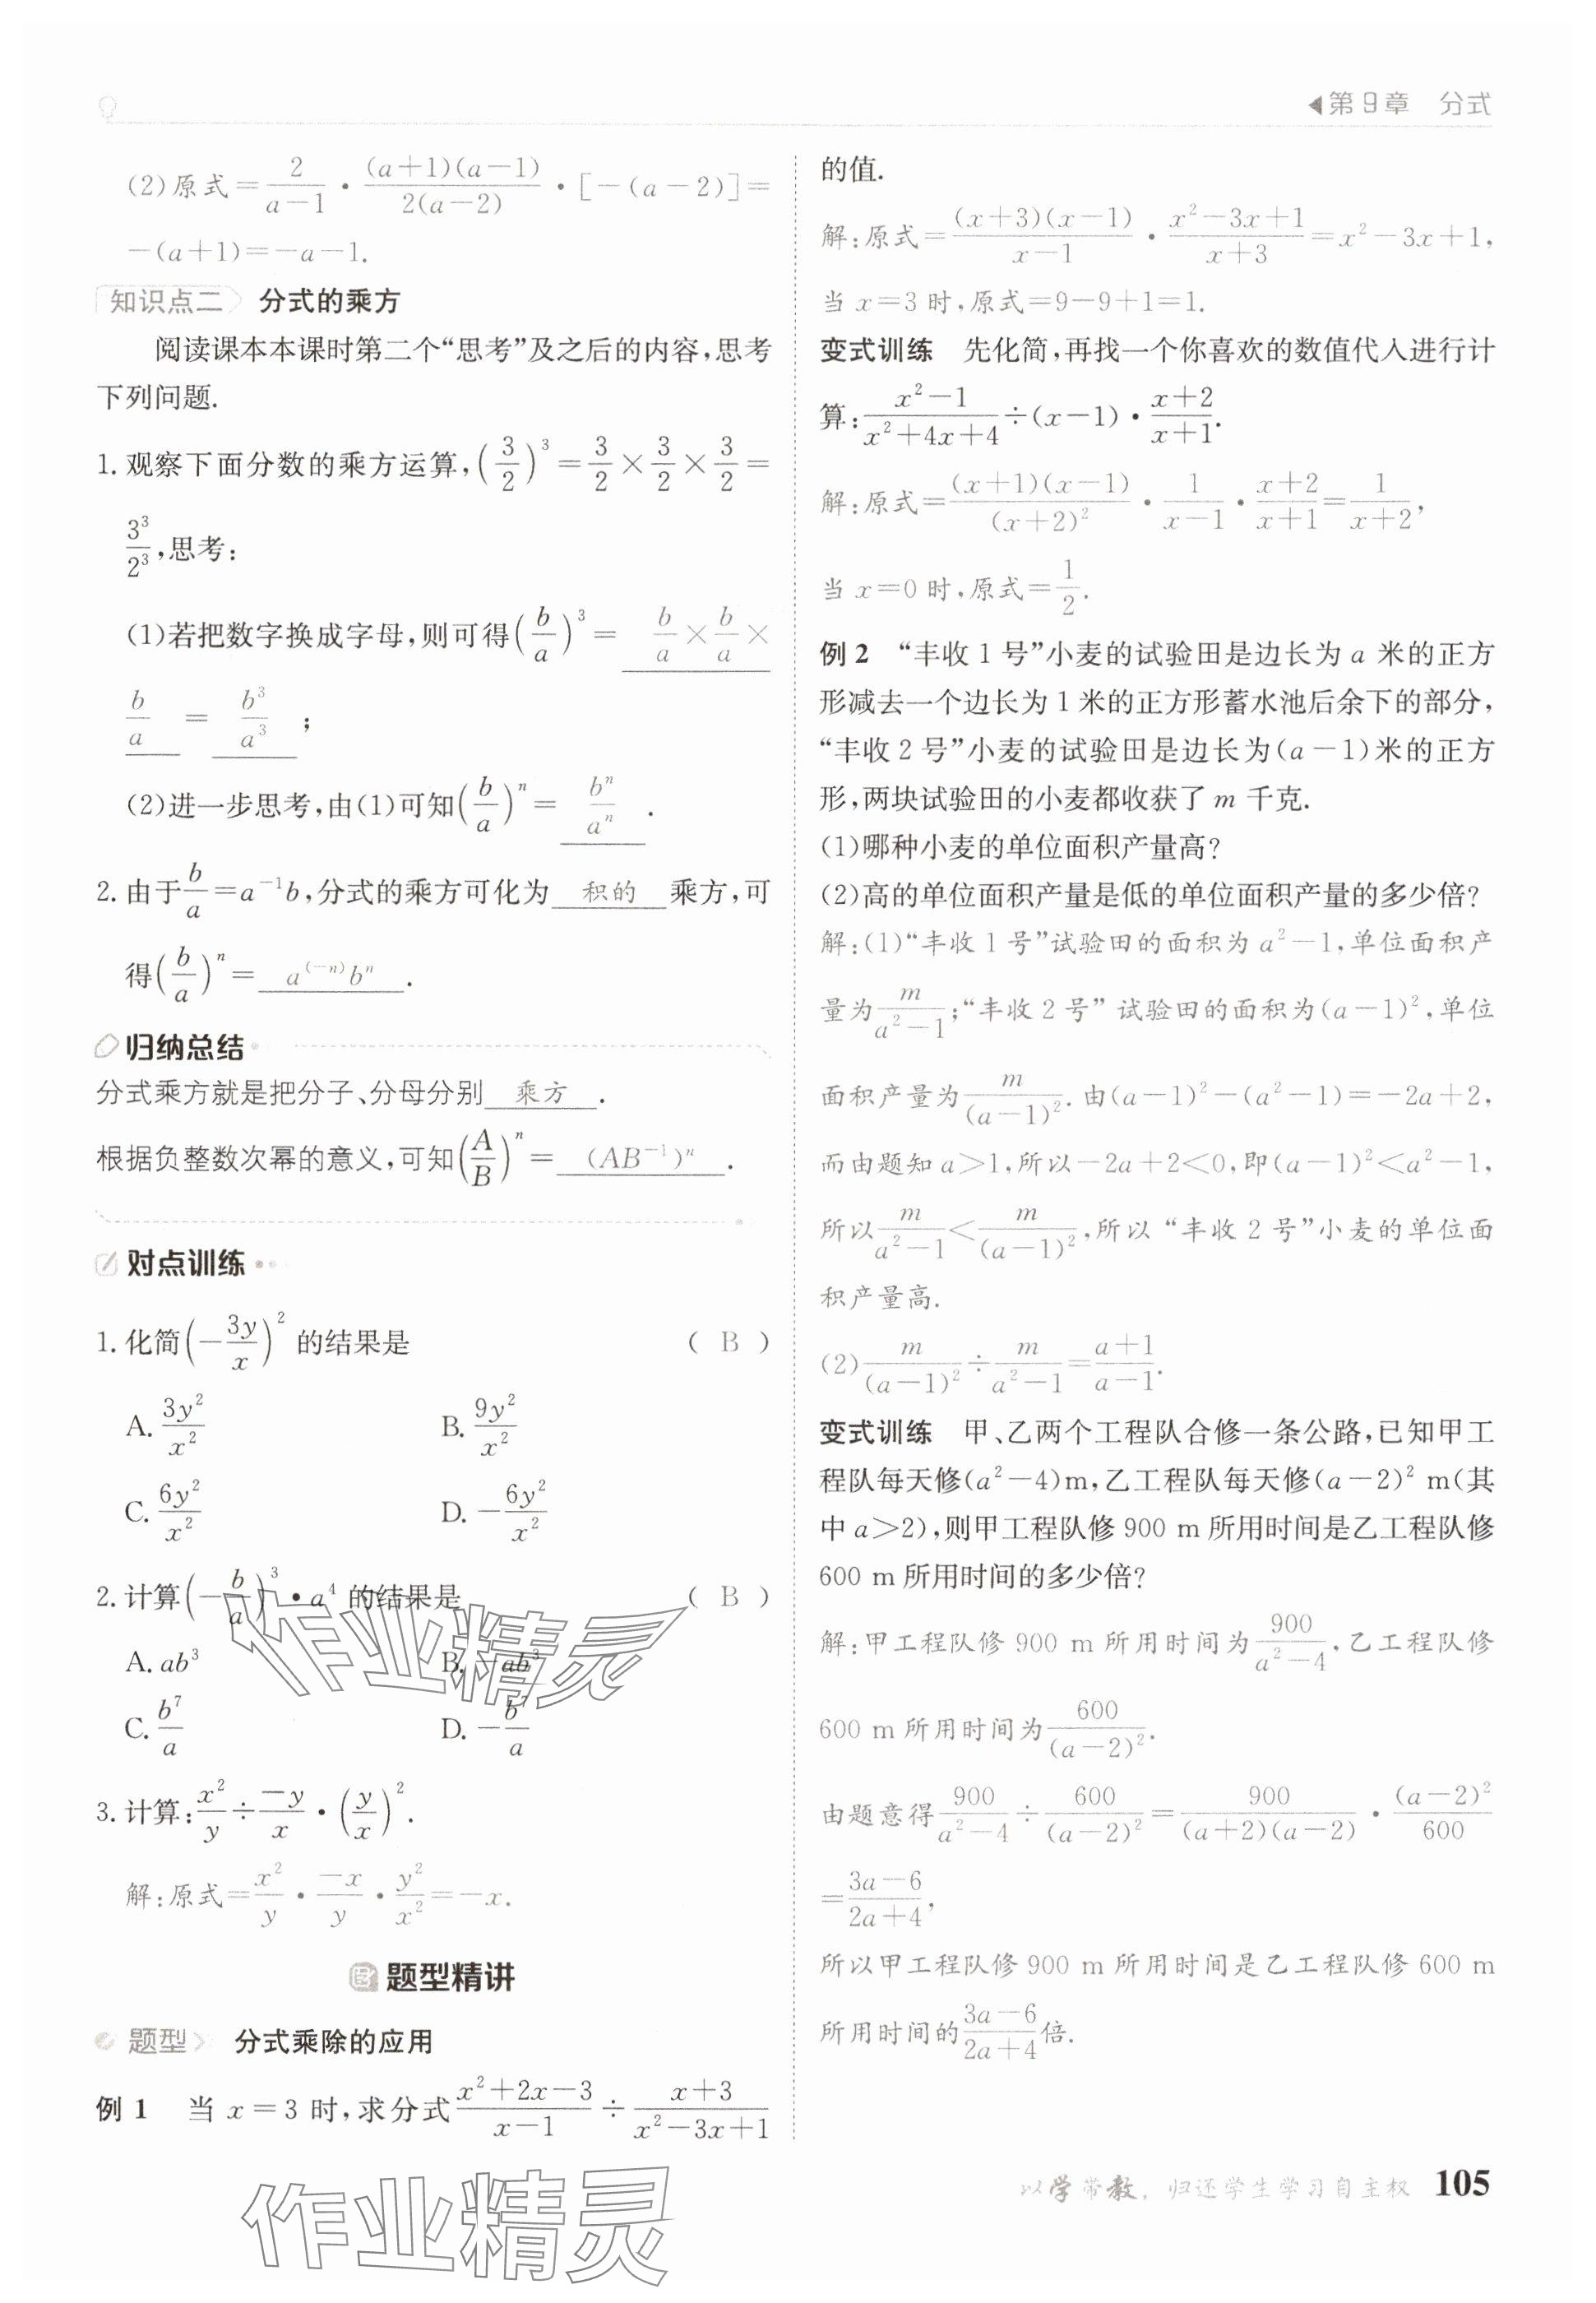 ◀第9章 分式
(2)原式=\frac{2}{a-1}·\frac{(a+1)(a-1)}{2(a-2)}·[-(a-2)]=
-(a+1)=-a-1.
知识点二 分式的乘方
阅读课本本课时第二个“思考”及之后的内容,思考
下列问题.
1. 观察下面分数的乘方运算,(\frac{3}{2})^3=\frac{3}{2}×\frac{3}{2}×\frac{3}{2}=
\frac{3^3}{2^3},思考:
(1)若把数字换成字母,则可得(\frac{b}{a})^3= \frac{b}{a}×\frac{b}{a}×
\frac{b}{a} = \frac{b^3}{a^3} ;
(2)进一步思考,由(1)可知(\frac{b}{a})^n= \frac{b^n}{a^n} .
2. 由于\frac{b}{a}=a^{-1}b,分式的乘方可化为 积的 乘方,可
得(\frac{b}{a})^n= a^{(-n)}b^n .
归纳总结
分式乘方就是把分子、分母分别 乘方 .
根据负整数次幂的意义,可知(\frac{A}{B})^n= (AB^{-1})^n .
对点训练
1. 化简(-\frac{3y}{x})^2 的结果是 ( B )
A. \frac{3y^2}{x^2} B. \frac{9y^2}{x^2}
C. \frac{6y^2}{x^2} D. -\frac{6y^2}{x^2}
2. 计算(-\frac{b}{a})^3·a^4 的结果是 ( B )
A. ab^3 B. -ab^3
C. \frac{b^7}{a} D. -\frac{b^7}{a}
3. 计算:\frac{x^2}{y}÷\frac{-y}{x}·(\frac{y}{x})^2.
解:原式=\frac{x^2}{y}·\frac{-x}{y}·\frac{y^2}{x^2}=-x.
题型精讲
题型 分式乘除的应用
例 1 当 x=3 时,求分式\frac{x^2+2x-3}{x-1}÷\frac{x+3}{x^2-3x+1}
的值.
解:原式=\frac{(x+3)(x-1)}{x-1}·\frac{x^2-3x+1}{x+3}=x^2-3x+1,
当 x=3 时,原式=9-9+1=1.
变式训练 先化简,再找一个你喜欢的数值代人进行计
算:\frac{x^2-1}{x^2+4x+4}÷(x-1)·\frac{x+2}{x+1}.
解:原式=\frac{(x+1)(x-1)}{(x+2)^2}·\frac{1}{x-1}·\frac{x+2}{x+1}=\frac{1}{x+2},
当 x=0 时,原式=\frac{1}{2}.
例 2 “丰收 1 号”小麦的试验田是边长为 a 米的正方
形减去一个边长为 1 米的正方形蓄水池后余下的部分,
“丰收 2 号”小麦的试验田是边长为(a-1)米的正方
形,两块试验田的小麦都收获了 m 千克.
(1)哪种小麦的单位面积产量高?
(2)高的单位面积产量是低的单位面积产量的多少倍?
解:(1)“丰收 1 号”试验田的面积为 a^2-1,单位面积产
量为\frac{m}{a^2-1};“丰收 2 号” 试验田的面积为(a-1)^2,单位
面积产量为\frac{m}{(a-1)^2}.由(a-1)^2-(a^2-1)=-2a+2,
而由题知 a>1,所以-2a+2<0,即(a-1)^2<a^2-1,
所以\frac{m}{a^2-1}<\frac{m}{(a-1)^2},所以 “丰收 2 号”小麦的单位面
积产量高.
(2)\frac{m}{(a-1)^2}÷\frac{m}{a^2-1}=\frac{a+1}{a-1}.
变式训练 甲、乙两个工程队合修一条公路,已知甲工
程队每天修(a^2-4)m,乙工程队每天修(a-2)^2 m(其
中 a>2),则甲工程队修 900 m 所用时间是乙工程队修
600 m 所用时间的多少倍?
解:甲工程队修 900 m 所用时间为\frac{900}{a^2-4},乙工程队修
600 m 所用时间为\frac{600}{(a-2)^2}.
由题意得\frac{900}{a^2-4}÷\frac{600}{(a-2)^2}=\frac{900}{(a+2)(a-2)}·\frac{(a-2)^2}{600}
=\frac{3a-6}{2a+4},
所以甲工程队修 900 m 所用时间是乙工程队修 600 m
所用时间的\frac{3a-6}{2a+4}倍.
以学带教,归还学生学习自主权 105
作业精灵
作业精灵